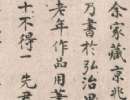 余家藏京兆
乃書於弘治甲
老年作品用筆
十不得一先君